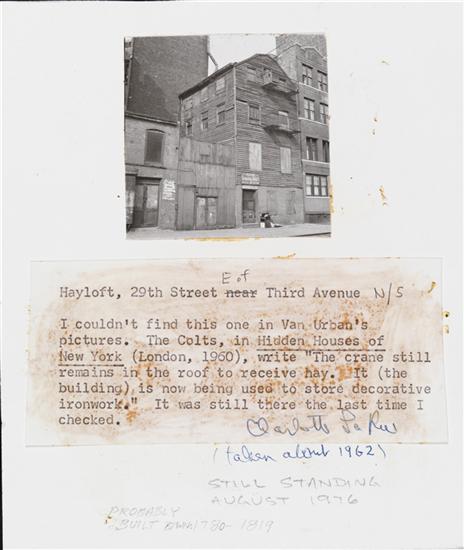 E of
Hayloft, 29th Street near Third Avenue N/S
I couldn't find this one in Van Urban's
pictures. The Colts, in Hidden Houses of
New York (London, 1960), write "The crane still
remains in the roof to receive hay. It (the
building) is now being used to store decorative
ironwork." It was still there the last time I
checked.
Charlotte La Rue
(taken about 1962)
STILL STANDING
AUGUST 1976
PROBABLY
BUILT 1780-1819